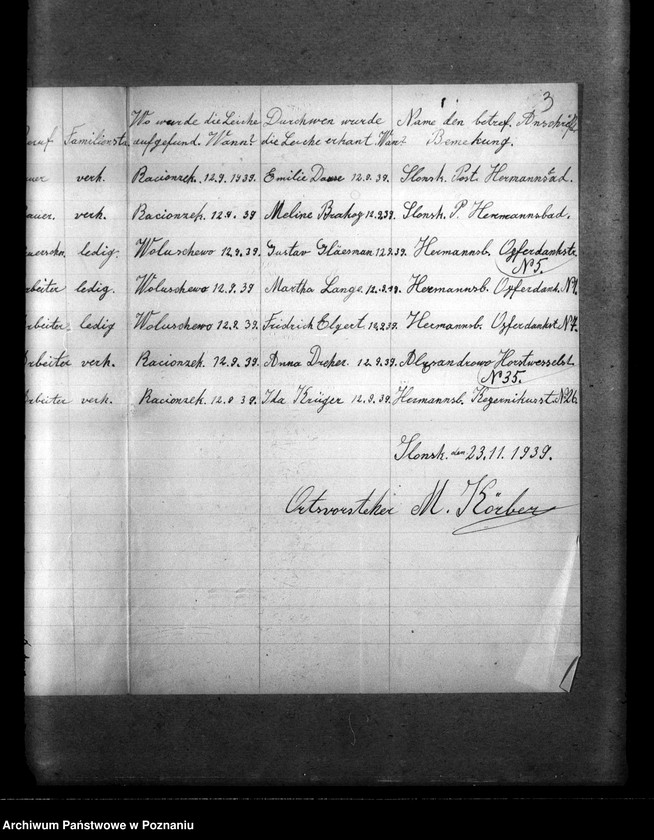 3
Wo wurde die Leiche Durchwen wurde Name den betref. Anschrift
Familiensta. aufgefund. Wann? die Leiche erkant. Wan? Bemekung.
verh. Racionzek. 12.9.1939. Emilie Dause 12.9.39. Slonsk. Post. Hermannsbad.
auer. verh. Racionzek. 12.9.39 Meline Brahog 12.9.39. Slonsk. P. Hermannsbad.
ledig. Woluschewo 12.9.39. Gustav Gläesman 12.9.39. Hermannsb. Opferdankstr.
N5.
rbeiter ledig. Woluschewo 12.9.39 Martha Lange. 12.9.39. Hermannsb. Opferdank.
rbeiter ledig Woluschewo 12.9.39. Fridrich Elgert. 12.9.39. Hermannsb. Opferdankst.
rbeiter verh. Racionzek. 12.9.39. Anna Dreher 12.9.39. Alexsandrowo Horstwesselst.
N35.
rbeiter verh. Racionzek. 12.9.39. Ida Krüger 12.9.39. Hermannsb. Kopernikusst. N26.
Slonsk. den 23.11.1939.
Ortsvorsteher M. Körber
Archiwum Państwowe w Poznaniu